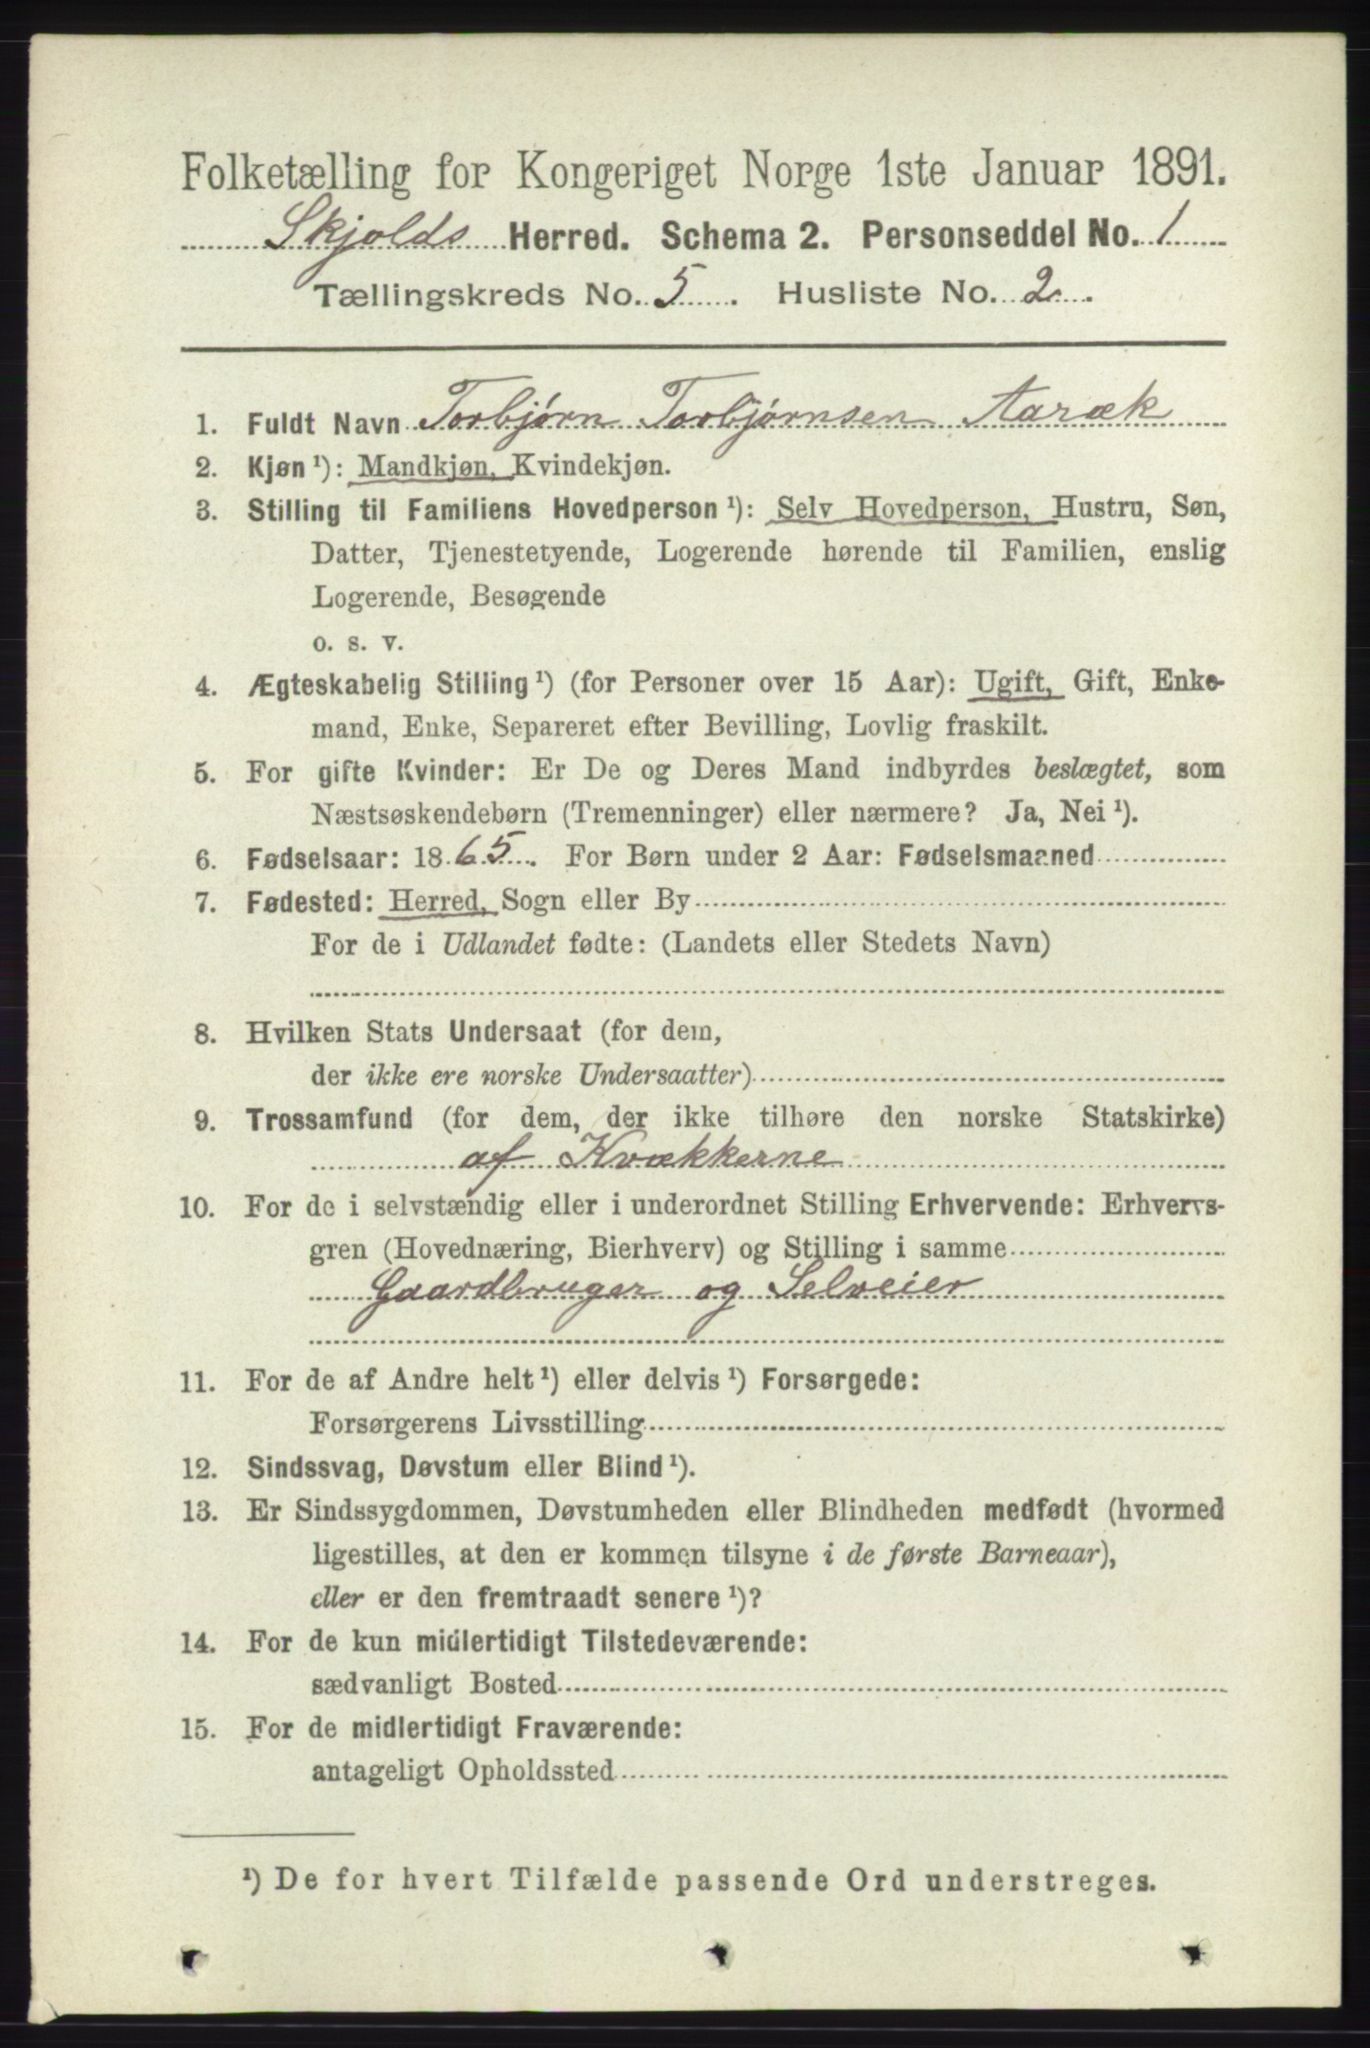 Folketælling for Kongeriget Norge 1ste Januar 1891.
Skjolds Herred. Schema 2. Personseddel No. 1
Tællingskreds No. 5. Husliste No. 2.
1. Fuldt Navn Torbjørn Torbjørnsen Aaræk
2. Kjøn ¹): Mandkjøn, Kvindekjøn.
3. Stilling til Familiens Hovedperson ¹): Selv Hovedperson, Hustru, Søn,
Datter, Tjenestetyende, Logerende hørende til Familien, enslig
Logerende, Besøgende
o. s. v.
4. Ægteskabelig Stilling ¹) (for Personer over 15 Aar): Ugift, Gift, Enke-
mand, Enke, Separeret efter Bevilling, Lovlig fraskilt.
5. For gifte Kvinder: Er De og Deres Mand indbyrdes beslægtet, som
Næstsøskendebørn (Tremenninger) eller nærmere? Ja, Nei ¹).
6. Fødselsaar: 1865. For Børn under 2 Aar: Fødselsmaaned
7. Fødested: Herred, Sogn eller By
For de i Udlandet fødte: (Landets eller Stedets Navn)
8. Hvilken Stats Undersaat (for dem,
der ikke ere norske Undersaatter)
9. Trossamfund (for dem, der ikke tilhøre den norske Statskirke)
af Kvækkerne
10. For de i selvstændig eller i underordnet Stilling Erhvervende: Erhvervs-
gren (Hovednæring, Bierhverv) og Stilling i samme
Gaardbruger og Selveier
11. For de af Andre helt ¹) eller delvis ¹) Forsørgede:
Forsørgerens Livsstilling
12. Sindssvag, Døvstum eller Blind ¹).
13. Er Sindssygdommen, Døvstumheden eller Blindheden medfødt (hvormed
ligestilles, at den er kommen tilsyne i de første Barneaar),
eller er den fremtraadt senere ¹)?
14. For de kun midlertidigt Tilstedeværende:
sædvanligt Bosted
15. For de midlertidigt Fraværende:
antageligt Opholdssted
¹) De for hvert Tilfælde passende Ord understreges.